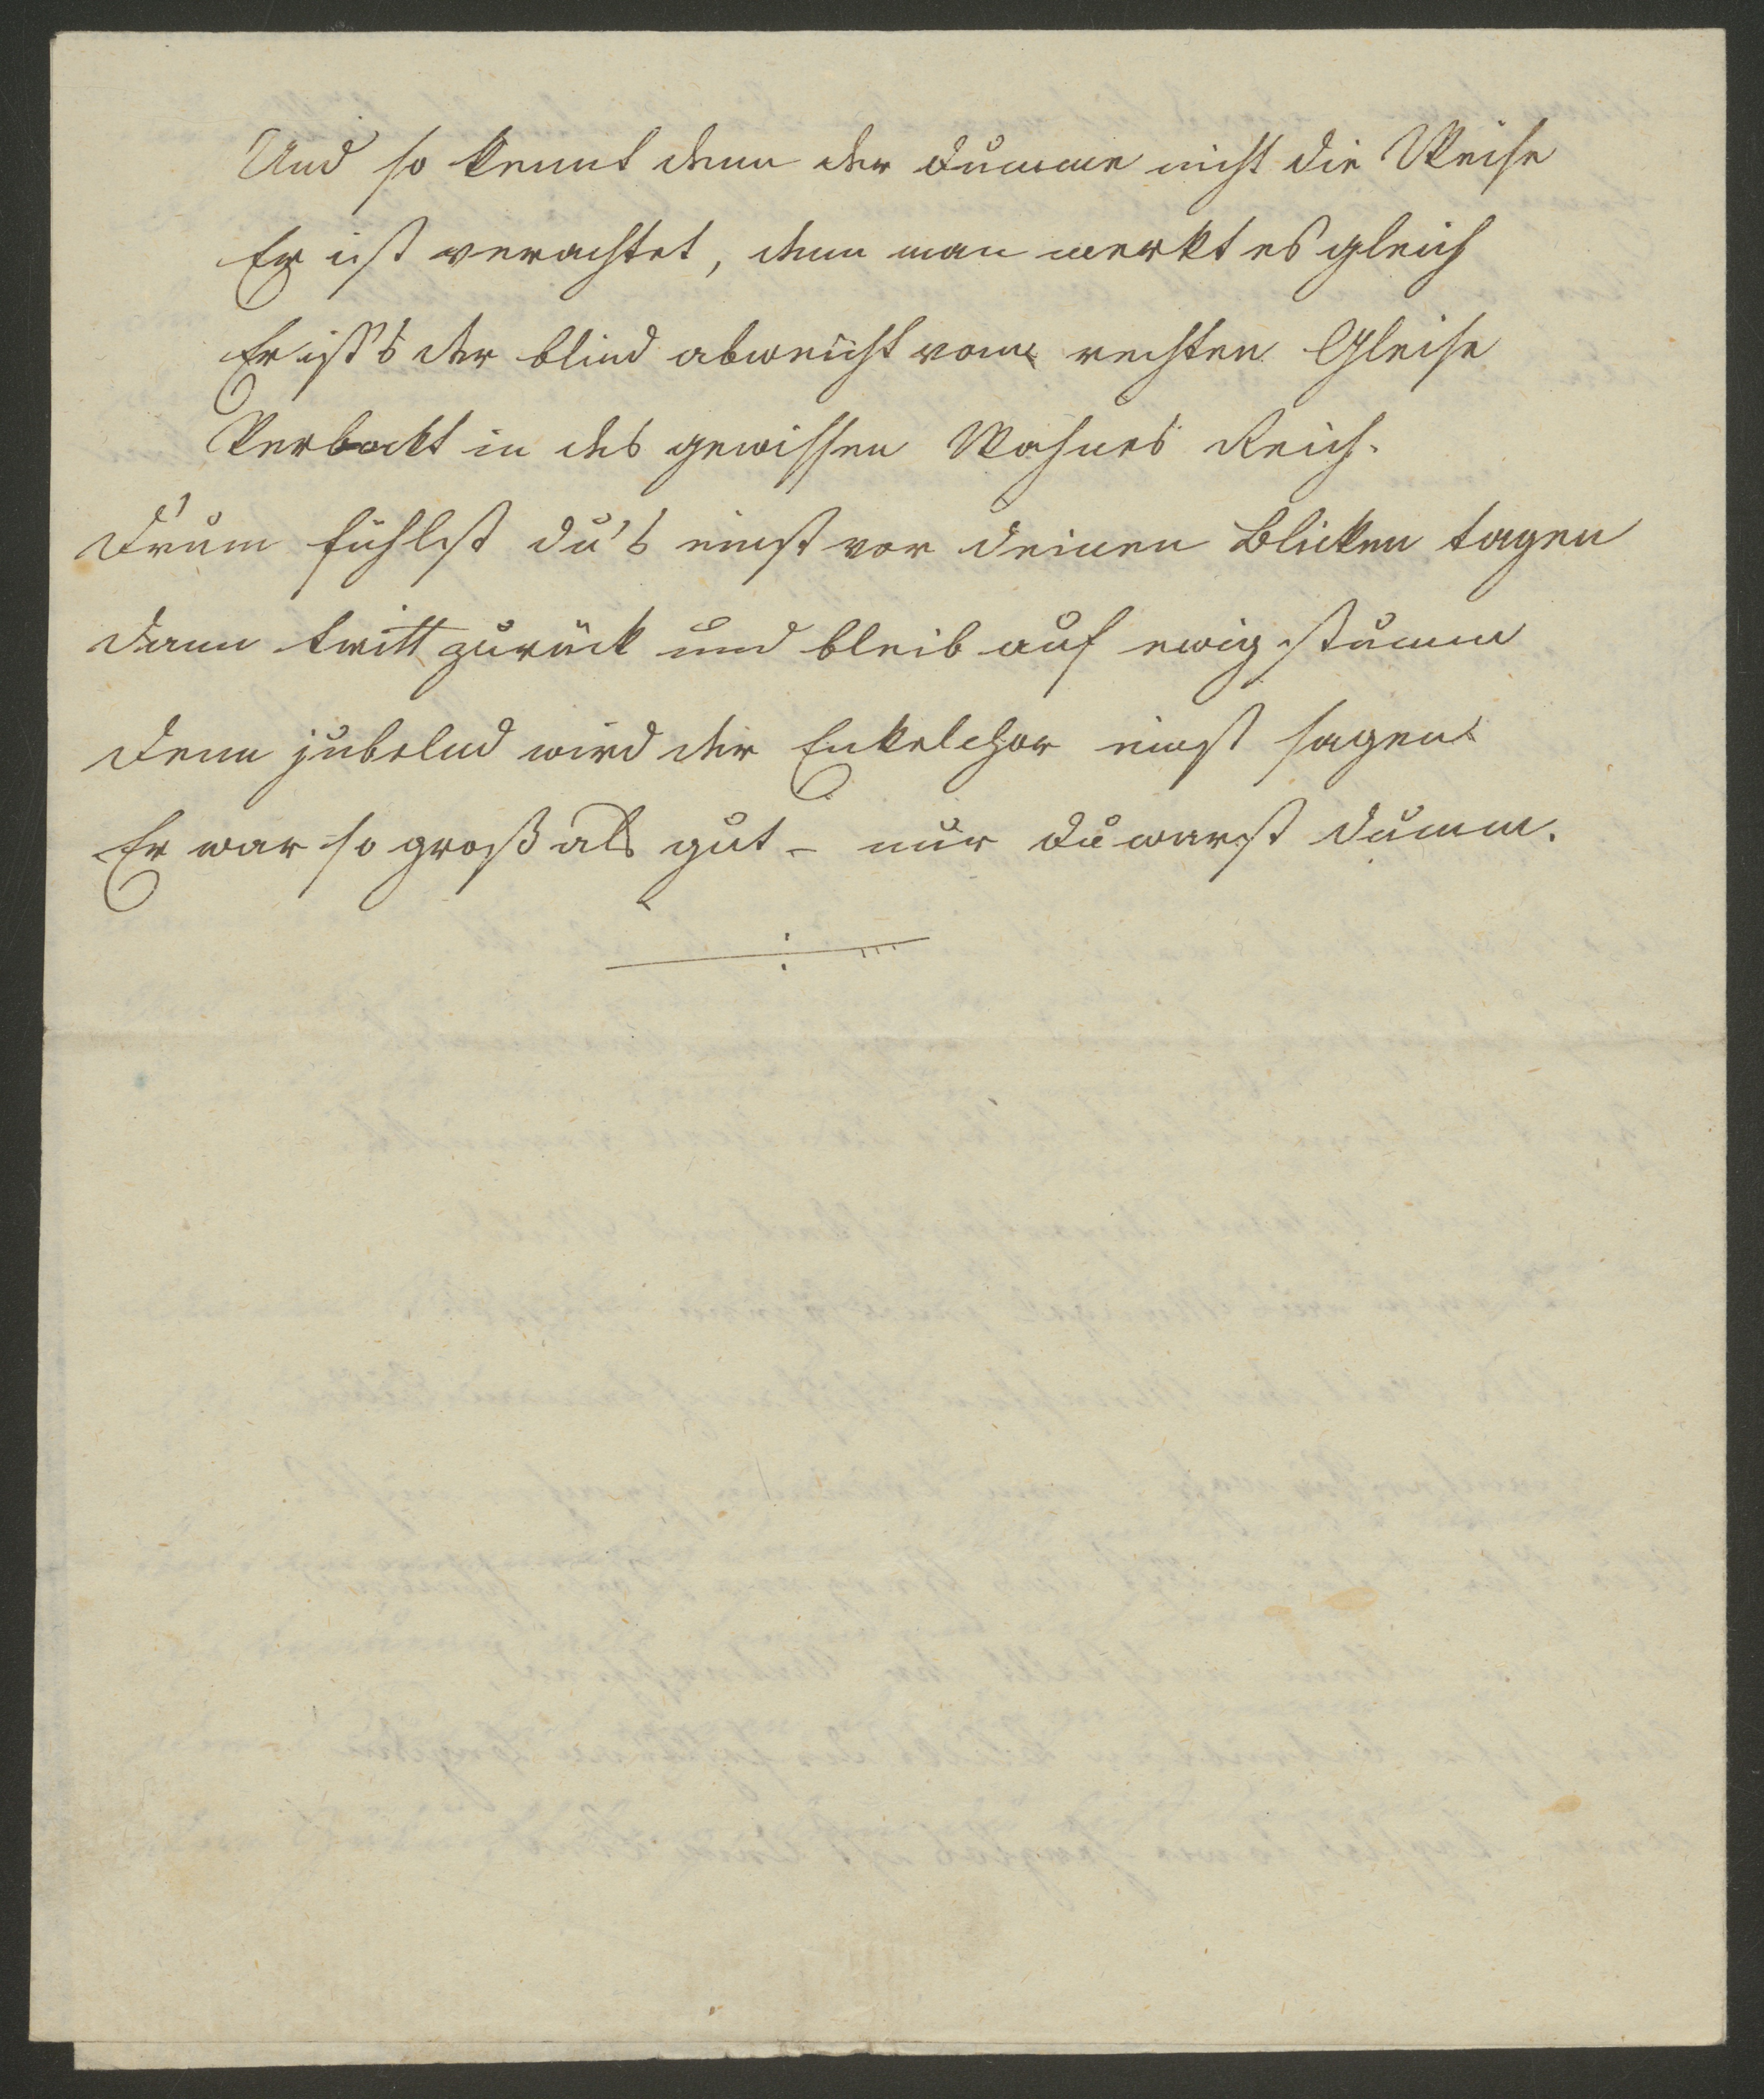 Und so kennt denn der dumme nicht die Weise
Er ist verachtet, denn man merkt es gleich
Er ist's der blind abweicht vom rechten Gleise
Verbockt in des gewissen Wahnes Reich.
D'rum fühlst du's einst vor deinen Blicken tagen
Dann tritt zurück und bleib auf ewig stumm
Denn jubelnd wird der Enkelchor einst sagen
Er war so groß als gut – nur du warst dumm.